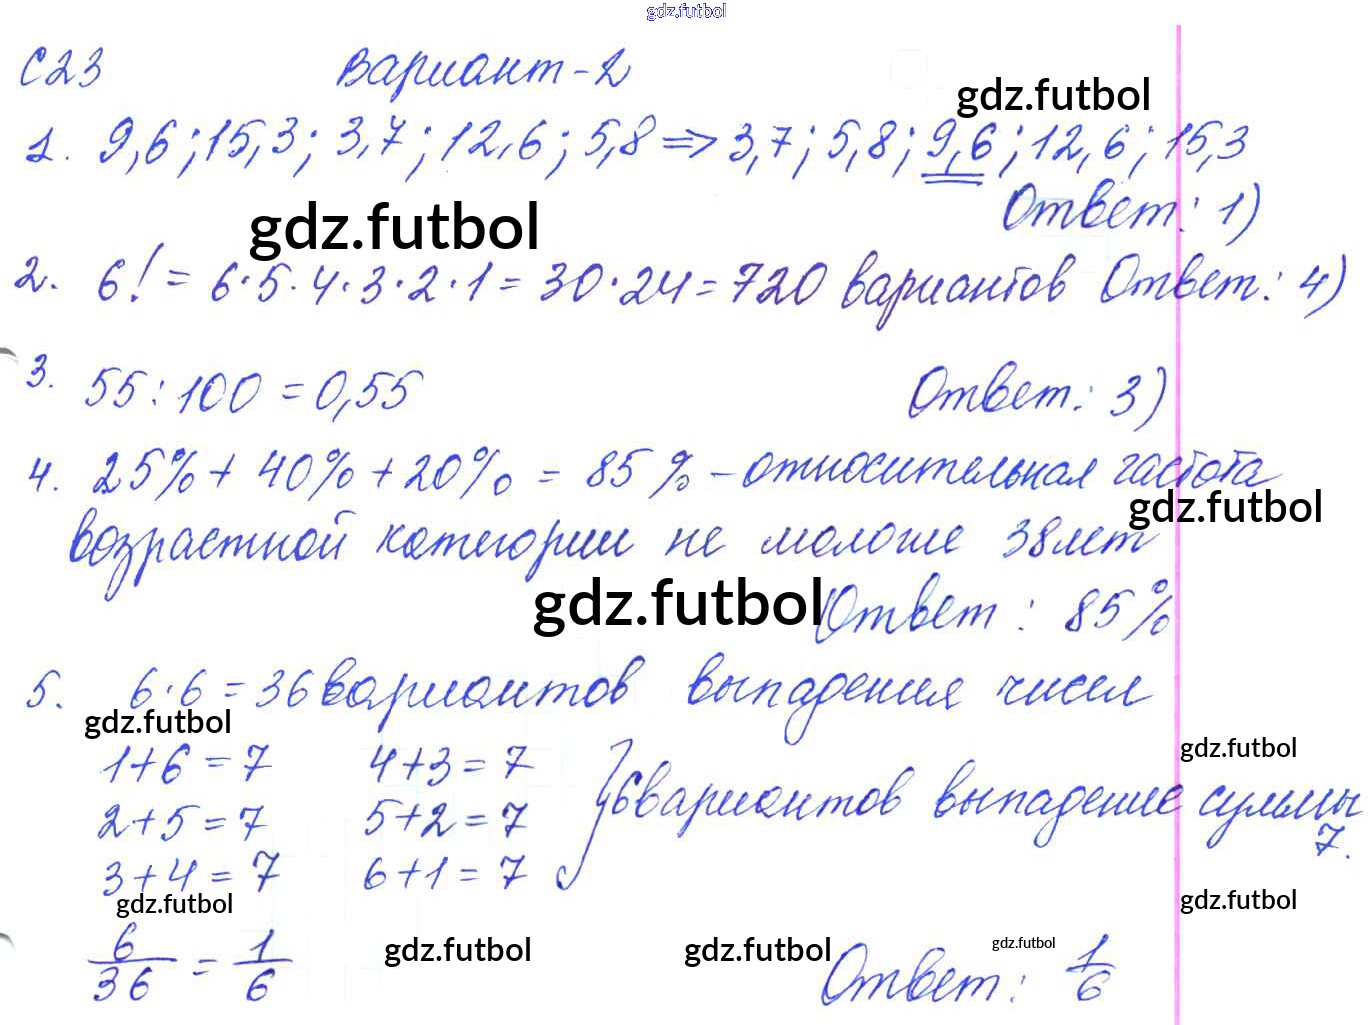 gdz.futbol
С23 Вариант-2
gdz.futbol
1. 9,6; 15,3; 3,7; 12,6; 5,8 => 3,7; 5,8; 9,6; 12,6; 15,3
Ответ: 1)
gdz.futbol
2. 6! = 6·5·4·3·2·1 = 30·24 = 720 вариантов Ответ: 4)
3. 55:100 = 0,55 Ответ: 3)
4. 25% + 40% + 20% = 85% - относительная частота
gdz.futbol
возрастной категории не моложе 38 лет
gdz.futbol
Ответ: 85%
5. 6·6 = 36 вариантов выпадения чисел
gdz.futbol
gdz.futbol
1+6=7 4+3=7
2+5=7 5+2=7 } 6 вариантов выпадение суммы
7.
3+4=7 6+1=7
gdz.futbol gdz.futbol
6/36 = 1/6 gdz.futbol gdz.futbol gdz.futbol
Ответ: 1/6